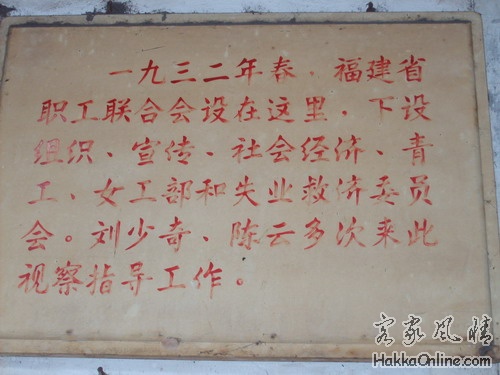 一九三二年春，福建省
职工联合会设在这里，下设
组织、宣传、社会经济、青
工、女工部和失业救济委员
会。刘少奇、陈云多次来此
视察指导工作。
客家风情
HakkaOnline.com